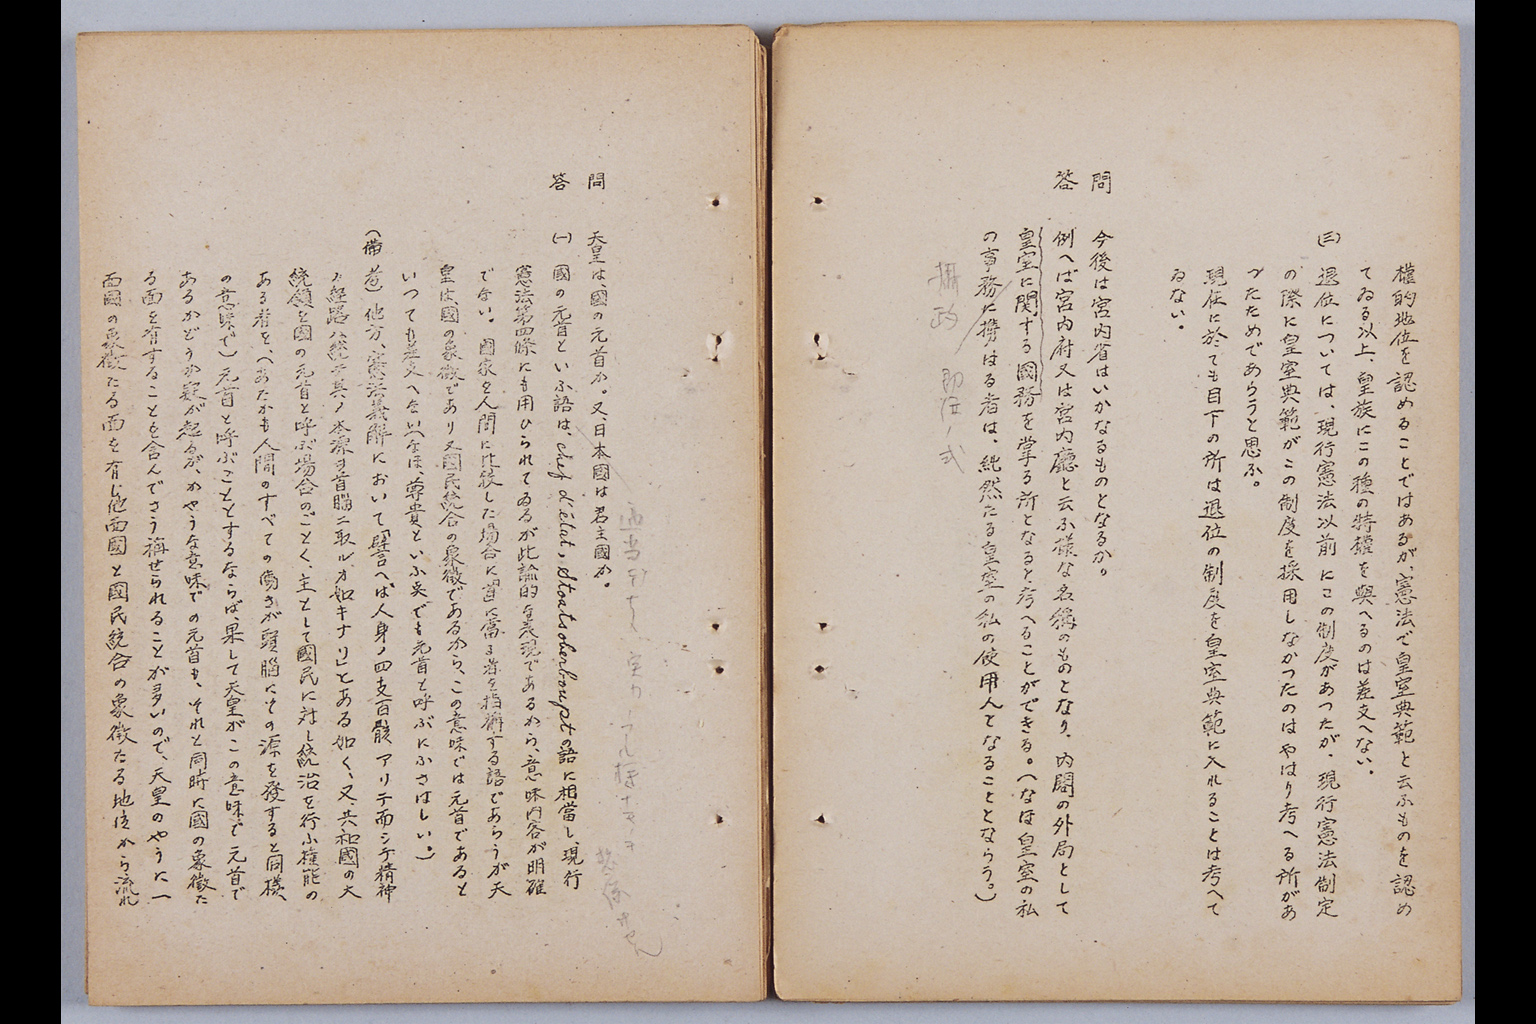 權的地位を認めることではあるが、憲法で皇室典範と云ふものを認め
てゐる以上、皇族にこの種の特權を與へるのは差支へない。
(三) 退位については、現行憲法以前にこの制度があつたが、現行憲法制定
の際に皇室典範がこの制度を採用しなかつたのはやはり考へる所があ
つたためであらうと思ふ。
現在に於ても目下の所は退位の制度を皇室典範に入れることは考へて
ゐない。
問 今後は宮内省はいかなるものとなるか。
答 例へば宮内府又は宮内廳と云ふ樣な名稱のものとなり、内閣の外局として
皇室に関する國務を掌る所となると考へることができる。(なほ皇室の私
の事務に携はる者は、純然たる皇室の私の使用人となることとならう。)
攝政 即位ノ式
問 天皇は、國の元首か。又日本國は君主國か。
答 (一) 國の元首といふ語は、chef d'état, Staatsoberhauptの語に相當し、現行
憲法第四條にも用ひられてゐるが比諭的な表現であるから、意味内容が明確
でない。國家を人間に比較した場合に首に當る者を指稱する語であらうが天
皇は、國の象徴であり又國民統合の象徴であるから、この意味では元首であると
いつても差支へない(なほ、尊貴といふ点でも元首と呼ぶにふさはしい。)
(備考 他方、憲法義解において「譬へば人身ノ四支百骸アリテ而シテ精神
ノ經路ハ總テ其ノ本源ヲ首腦ニ取ルカ如キナリ」とある如く、又、共和國の大
統領を國の元首と呼ぶ場合のごとく、主として國民に対し統治を行ふ權能の
ある者を、(あたかも人間のすべての働きが頭腦にその源を發すると同樣、
の意味で)元首と呼ぶこととするならば、果して天皇がこの意味で元首で
あるかどうか疑が起るが、かやうな意味での元首も、それと同時に國の象徴た
る面を有することを含んでさう稱せられることが多いので、天皇のやうに一
面國の象徴たる面を有し他面國と國民統合の象徴たる地位から流れ